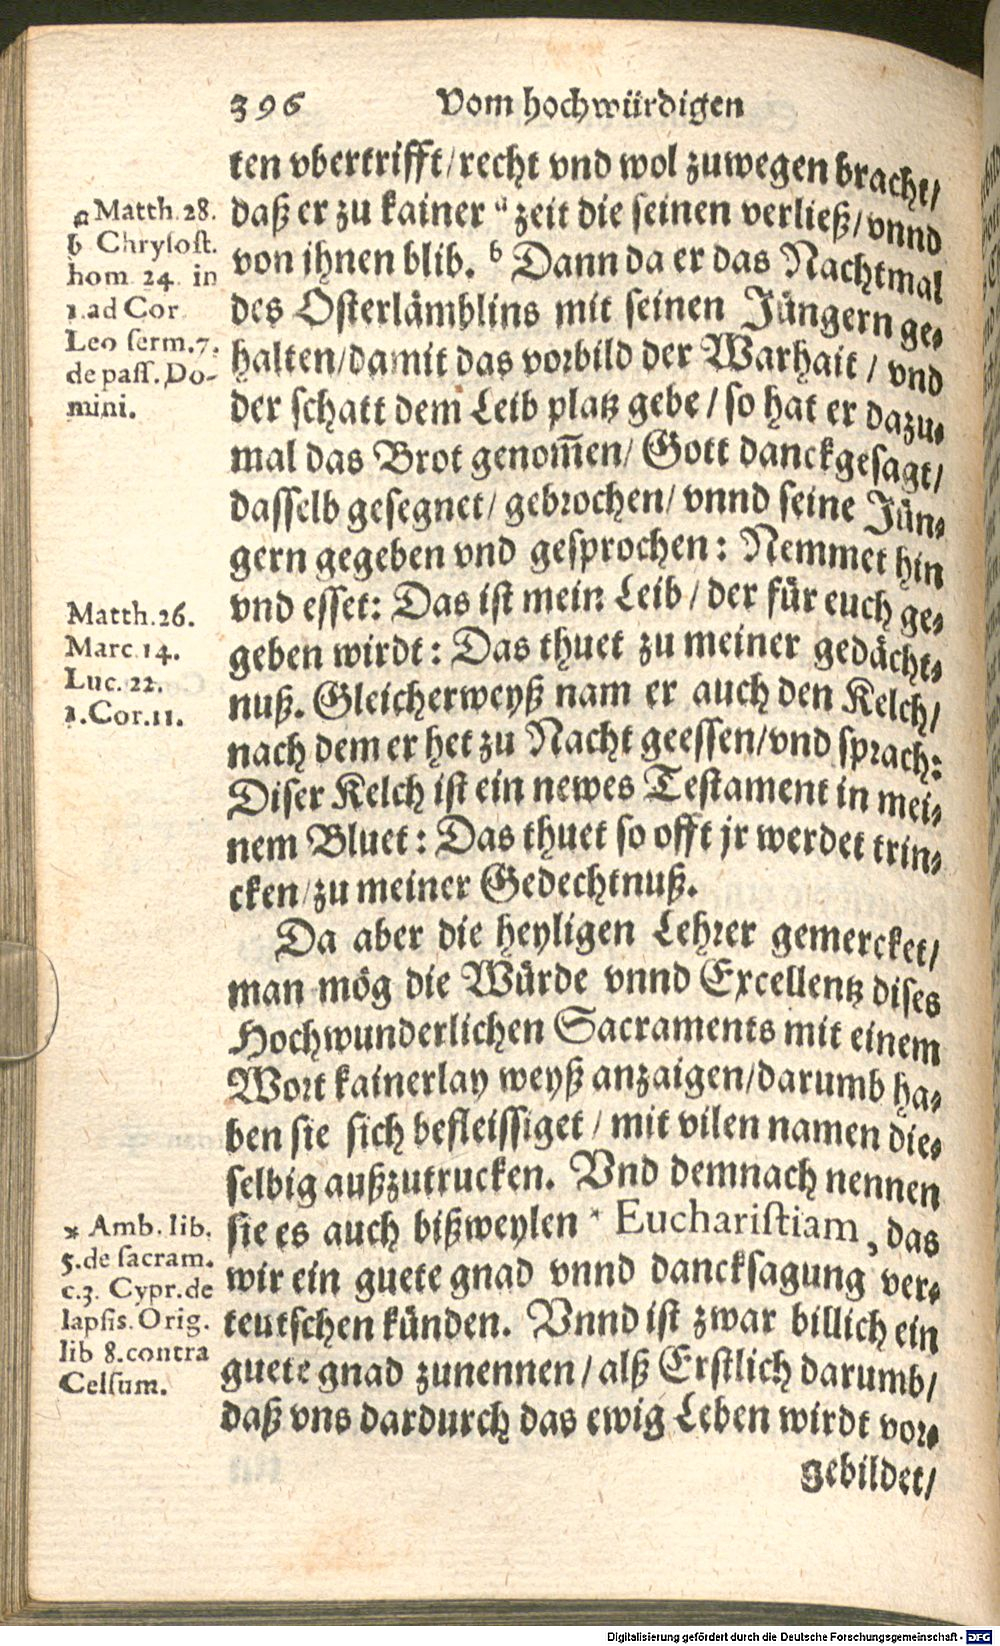 396 Vom hochwürdigen
ten vbertrifft/ recht vnd wol zuwegen bracht/
daß er zu kainer a zeit die seinen verließ/ vnnd
von ihnen blib. b Dann da er das Nachtmal
des Osterlämblins mit seinen Jüngern ge-
halten/ damit das vorbild der Warhait / vnd
der schatt dem Leib platz gebe / so hat er dazu-
mal das Brot genom̃en/ Gott danckgesagt/
dasselb gesegnet/ gebrochen/ vnnd seine Jün-
gern gegeben vnd gesprochen: Nemmet hin
vnd esset: Das ist mein Leib / der für euch ge-
geben wirdt: Das thuet zu meiner gedächt-
nuß. Gleicherweyß nam er auch den Kelch/
nach dem er het zu Nacht geessen/ vnd sprach:
Diser Kelch ist ein newes Testament in mei-
nem Bluet: Das thuet so offt jr werdet trin-
cken/ zu meiner Gedechtnuß.
Da aber die heyligen Lehrer gemercket/
man mög die Würde vnnd Excellentz dises
Hochwunderlichen Sacraments mit einem
Wort kainerlay weyß anzaigen/ darumb ha-
ben sie sich befleissiget / mit vilen namen die-
selbig außzutrucken. Vnd demnach nennen
sie es auch bißweylen * Euchariſtiam, das
wir ein guete gnad vnnd dancksagung ver-
teutschen künden. Vnnd ist zwar billich ein
guete gnad zunennen/ alß Erstlich darumb/
daß vns dardurch das ewig Leben wirdt vor-
gebildet/
a Matth. 28.
b Chryſoſt.
hom. 24. in
1. ad Cor.
Leo ſerm. 7.
de paſſ. Do-
mini.
Matth. 26.
Marc. 14.
Luc. 22.
1. Cor. 11.
* Amb. lib.
5. de ſacram.
c. 3. Cypr. de
lapſis. Orig.
lib 8. contra
Celſum.
Digitalisierung gefördert durch die Deutsche Forschungsgemeinschaft - DFG